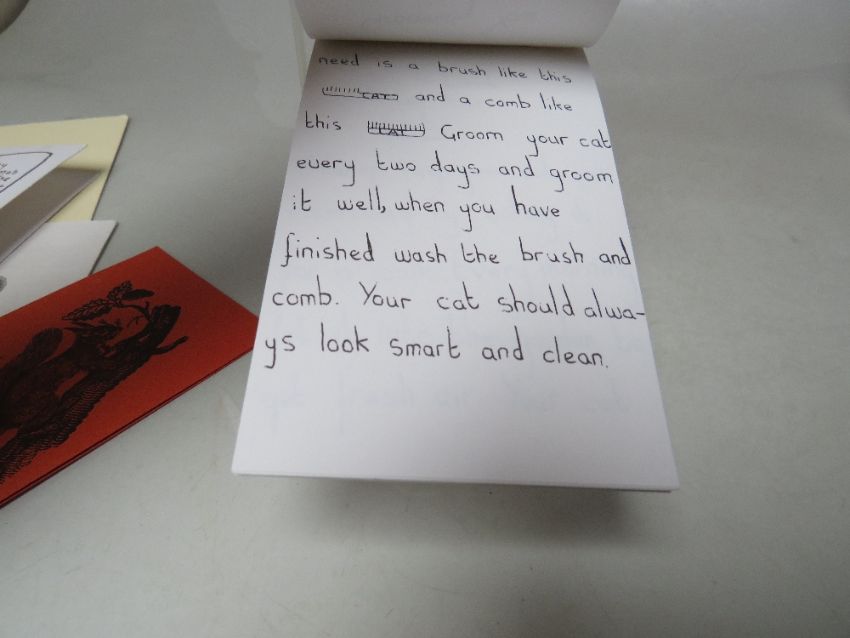 need is a brush like this
CAT and a comb like
this CAT Groom your cat
every two days and groom
it well, when you have
finished wash the brush and
comb. Your cat should alwa-
ys look smart and clean.